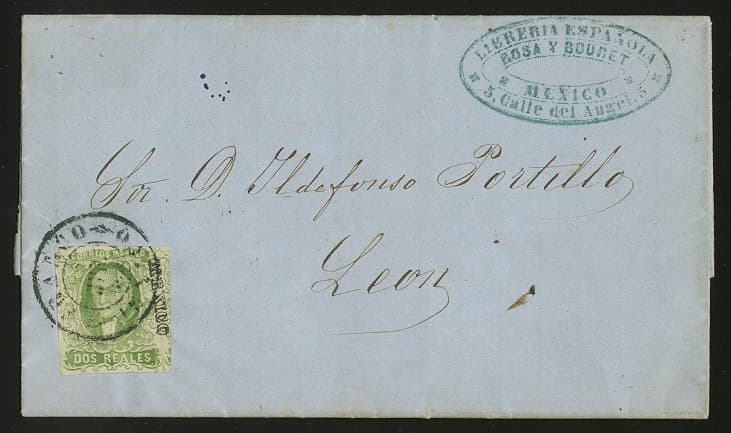 LIBRERIA ESPAÑOLA
ROSA Y BOURET
MEXICO
5, Calle del Angel, 5
Sor. D. Ildefonso Portillo
Leon
FRANCO
CORREOS MEJICO
MEXICO
DOS REALES